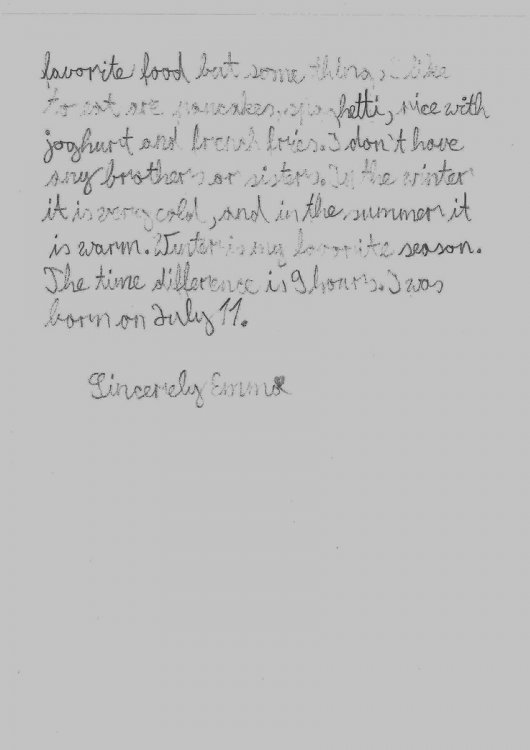 favorite food but some things I like
to eat are pancakes, spaghetti, rice with
joghurt and french fries. I don't have
any brothers or sisters. In the winter
it is very cold, and in the summer it
is warm. Winter is my favorite season.
The time difference is 9 hours. I was
born on July 11.
Sincerely Emma